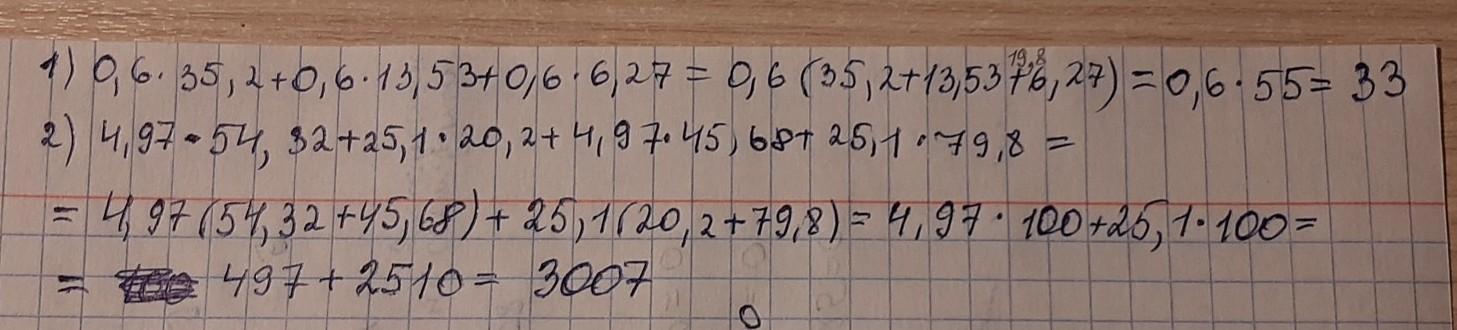 1) 0,6 · 35,2+0,6 · 13,53+0,6 · 6,27 = 0,6 (35,2+13,53+6,27) = 0,6 · 55 = 33
19,8
2) 4,97 · 54,32+25,1 · 20,2+4,97 · 45,68+25,1 · 79,8 =
= 4,97 (54,32+45,68) + 25,1 (20,2+79,8) = 4,97 · 100+25,1 · 100 =
= 497 + 2510 = 3007